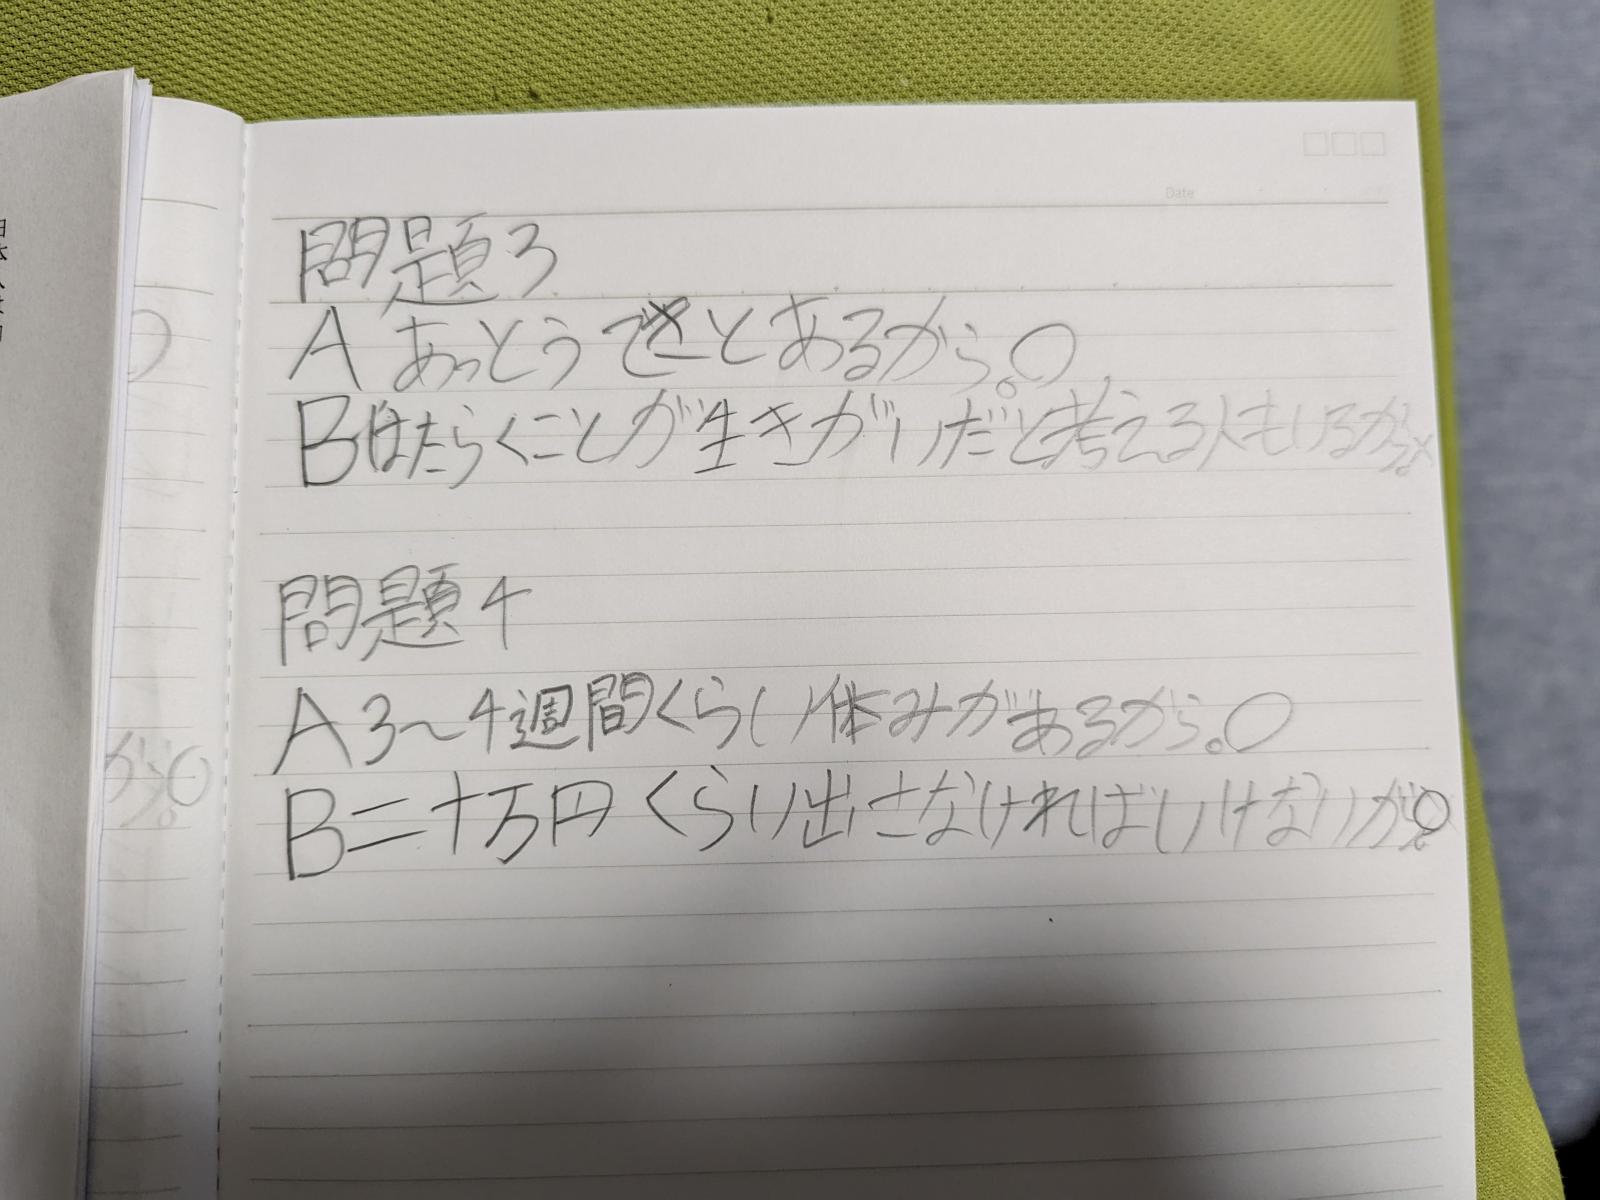 Date
問題3
A あっとうてきとあるから。○
Bはたらくことが生きがいだと考える人もいるから。×
問題4
A 3〜4週間くらい休みがあるから。○
B 二十万円くらい出さなければいけないから。○
から。○